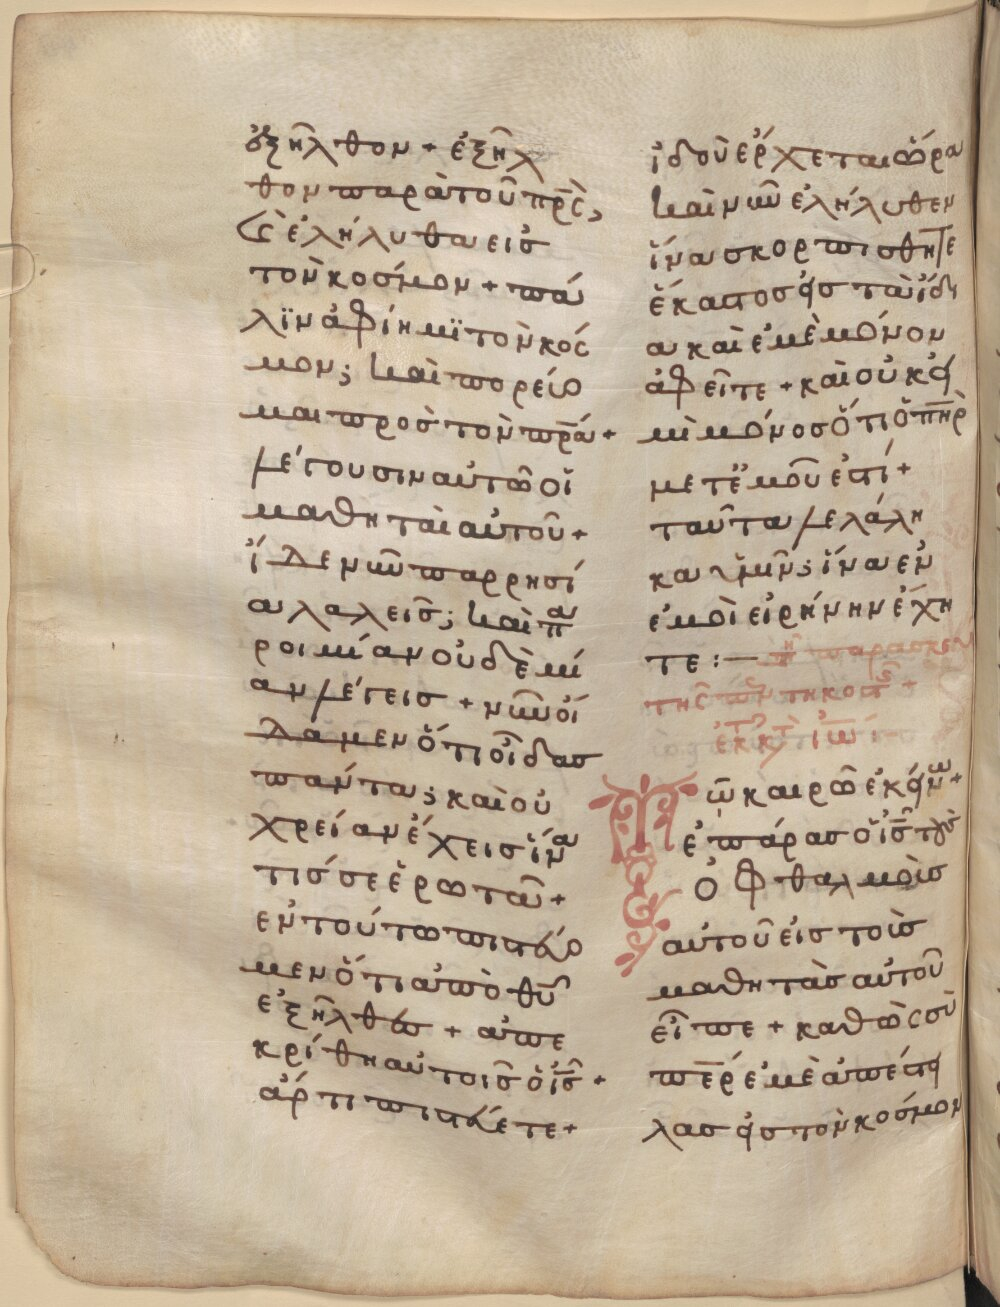 ἐξῆλθον + ἐξῆλ
θον παρὰ τοῦ πρ̅ς̅,
(καὶ) ἐλήλυθα εισ
τὸν κοσμον + πά
λϊν ἀφίημϊ τὸν κόσ
μον; καὶ πορεύο
μαι προσ τὸν π̅ρ̅α̅ +
λέγουσιν αυτῶ οἱ
μαθηταὶ αὐτοῦ +
ἴδε νῦν παρρησί
α λαλεισ; καὶ πα
ροιμίαν οὐδὲμί
αν λέγεισ + νῦν οἴ
δαμεν ὅτι οἶδασ
πάντα; καὶ οὐ
χρείαν ἔχεισ ἵνα
τισ σε ἐρωτᾶ +
ἐν τούτω πιστεύο
μεν ὅτι ἀπὸ θ̅υ̅
ἐξῆλθεσ + ἀπε
κρίθη αὐτοισ ὁ ι̅ς̅ +
ἀρτι πιστεύετε +
ἰδοὺ ἐρχεται ὥρα
καὶ νῦν ἐλήλυθεν
ἵνα σκορπισθῆτε
ἕκαστοσ εἰσ τὰ ἴδι
α καὶ ἐμὲ μόνον
ἀφεῖτε + καὶ οὐκ εἰ
μὶ μόνοσ ὅτι ὁ π̅η̅ρ̅
μετ ἐμοῦ ἐστί +
ταῦτα λελάλη
κα ὑμῖν; ἵνα ἐν
ἐμοὶ εἰρήνην ἔχη
τε :— τῆ παρασκευ
τησ πεντηκοστῆσ +
ἐκ τοῦ κατὰ ἰω
Τῶ καιρῶ ἐκείνω +
ἐπάρασ ὁ ι̅ς̅ τοὺσ
ὀφθαλμοὺσ
αὐτοῦ εἰσ τοὺσ
μαθητὰσ αὐτοῦ
εἶπε + καθὼς σὺ
π̅ε̅ρ̅ ἐμὲ ἀπέστει
λασ εἰσ τὸν κοσμον